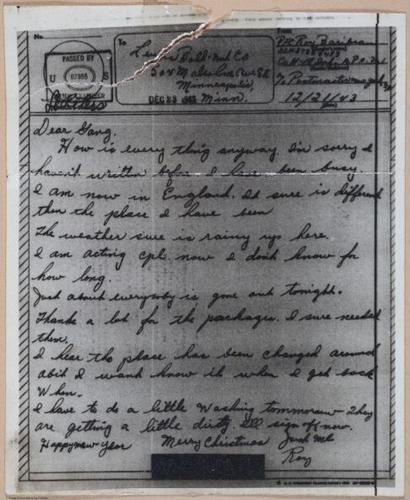 No.
PASSED BY
U S
07355
ARMY EXAMINER
To
Lewis Bolt-Nut Co
504 Malcolm Ave SE
Minneapolis,
Minn.
DEC 23 1943
From
Pvt Roy
% Postmaster
12/21/43
Dear Gang.
How is every thing anyway. I'm sorry I
haven't written before. I have been busy
I am now in England. It sure is different
then the place I have been
The weather sure is rainy up here.
I am acting cpl. now I don't know for
how long.
Just about everybody is gone out tonight.
Thanks a lot for the packages. I sure needed
them.
I hear the place has been changed around
abit I wont know it when I get back
When.
I have to do a little washing tommorow-They
are getting a little dirty. I'll sign off now.
Happy new year Merry Christmas Just Me
Roy